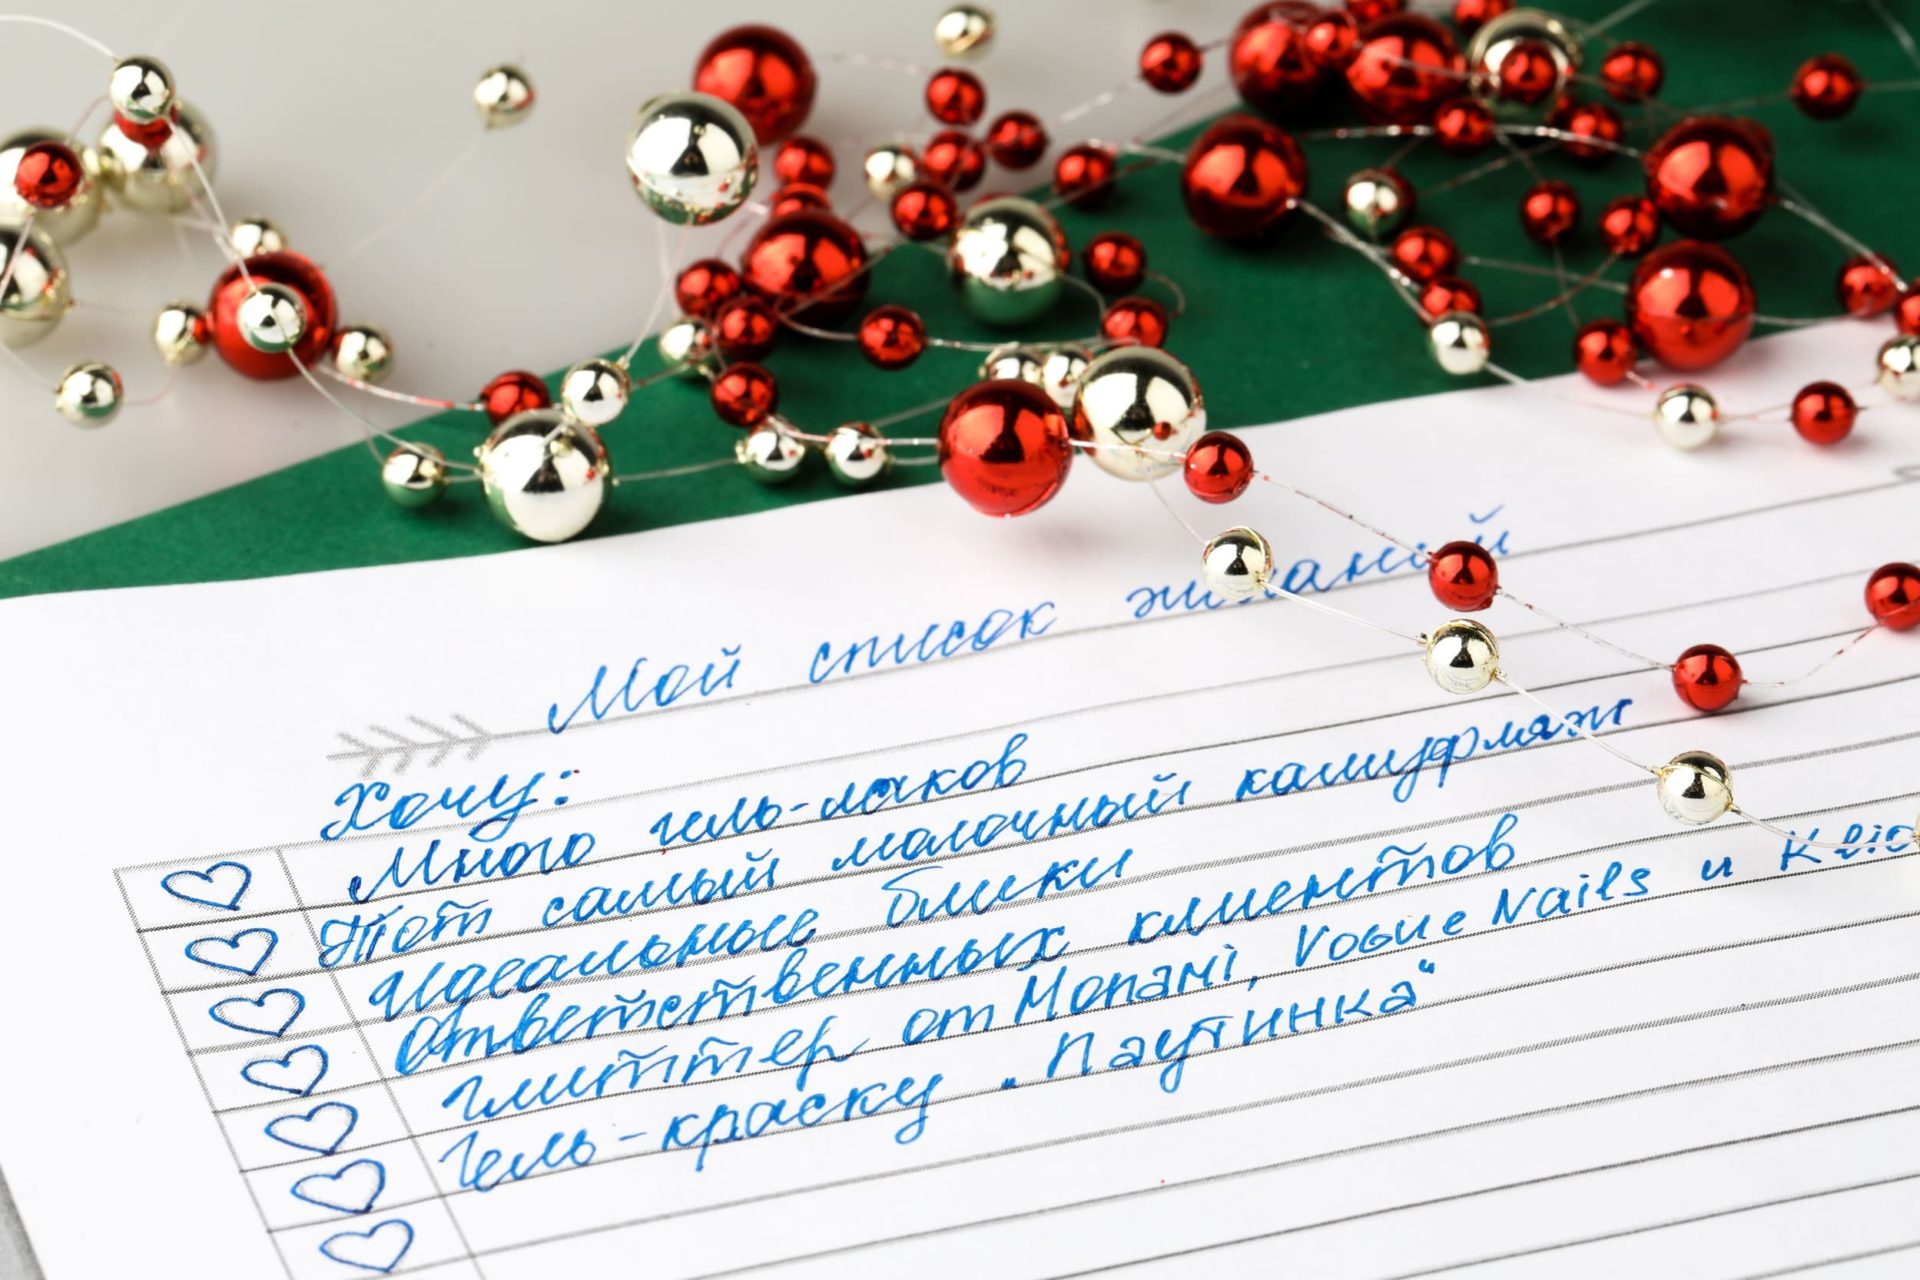 Мой список желаний
Хочу:
Много гель-лаков
Тот самый молочный камуфляж
Идеальные блики
Ответственных клиентов
Глиттер от Monami, Vogue Nails и
Гель-краску "Паутинка"